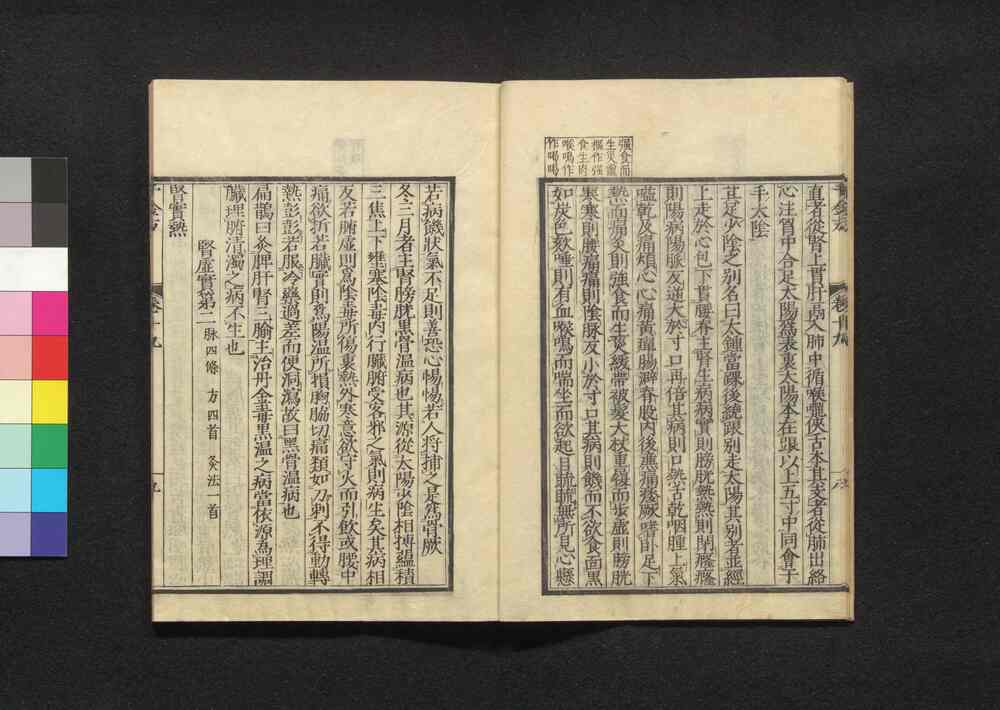 直者從腎上貫肝膈入肺中循喉嚨俠舌本其支者從肺出絡
心注胷中合足太陽爲表裏太陽本在跟以上五寸中同會于
手太陰
其足少陰之別名曰大鍾當踝後繞跟別走太陽其別者並經
上走於心包下貫腰脊主腎生病病實則膀胱熱熱則閉癃癃
則陽病陽脉反逆大於寸口再倍其病則口熱舌乾咽腫上氣
嗌乾及痛煩心心痛黃疸腸澼脊股內後廉痛痿厥嗜卧足下
熱而痛灸則強食而生灾緩帶被髮大杖重履而步虛則膀胱
寒寒則腰痛痛則陰脉反小於寸口其病則饑而不欲食面黑
如炭色欬唾則有血喉鳴而喘坐而欲起目䀮䀮無所見心懸
强食而
生灾
作强
食生肉
喉鳴作
喝喝
若病饑狀氣不足則善恐心惕惕若人將捕之是爲骨厥
冬三月者主腎膀胱黑骨溫病也其源從太陽少陰相搏蘊積
三焦上下壅塞陰毒內行臟腑受客邪之氣則病生矣其病相
反若腑虛則爲陰毒所傷裏熱外寒意欲守火而引飲或腰中
痛欲折若臟實則爲陽溫所損胸脇切痛類如刀刺不得動轉
熱彭彭若服冷藥過差而便洞瀉故曰黑骨溫病也
扁鵲曰灸脾肝腎三腧主治丹金毒黑溫之病當依源爲理調
臟理腑清濁之病不生也
腎虛實第二 脉四條 方四首 灸法一首
腎實熱